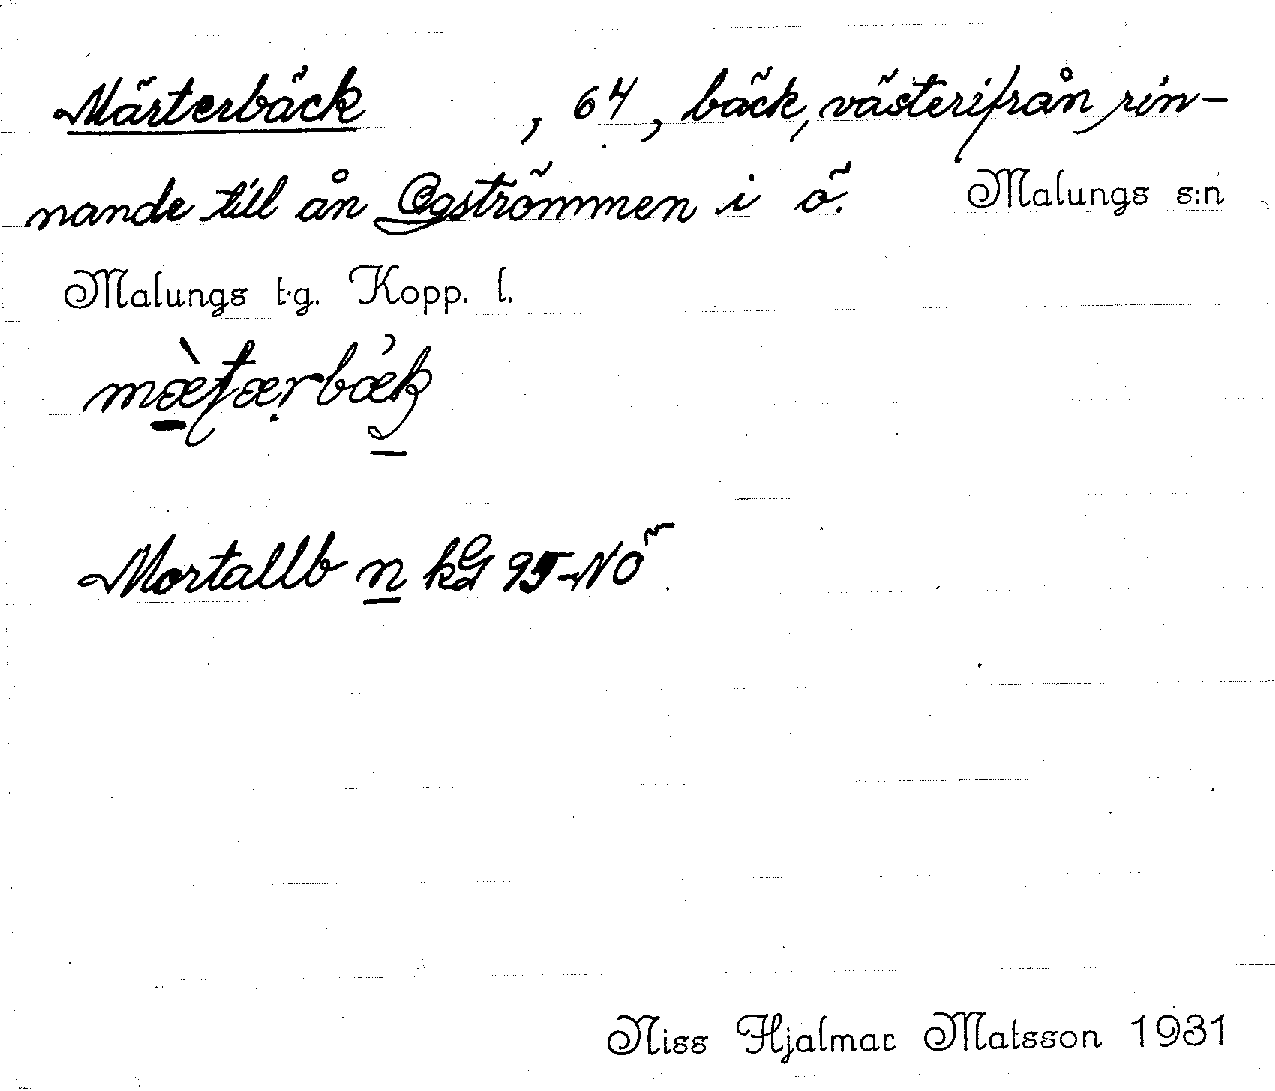 Märterbäck , 64, bäck, västerifrån rin-
nande till ån Ogströmmen i ö. Malungs s:n
Malungs t.g. Kopp. l.
mæ̀tærbæk
Mortallb n kG 95-NÖ
Niss Hjalmar Matsson 1931